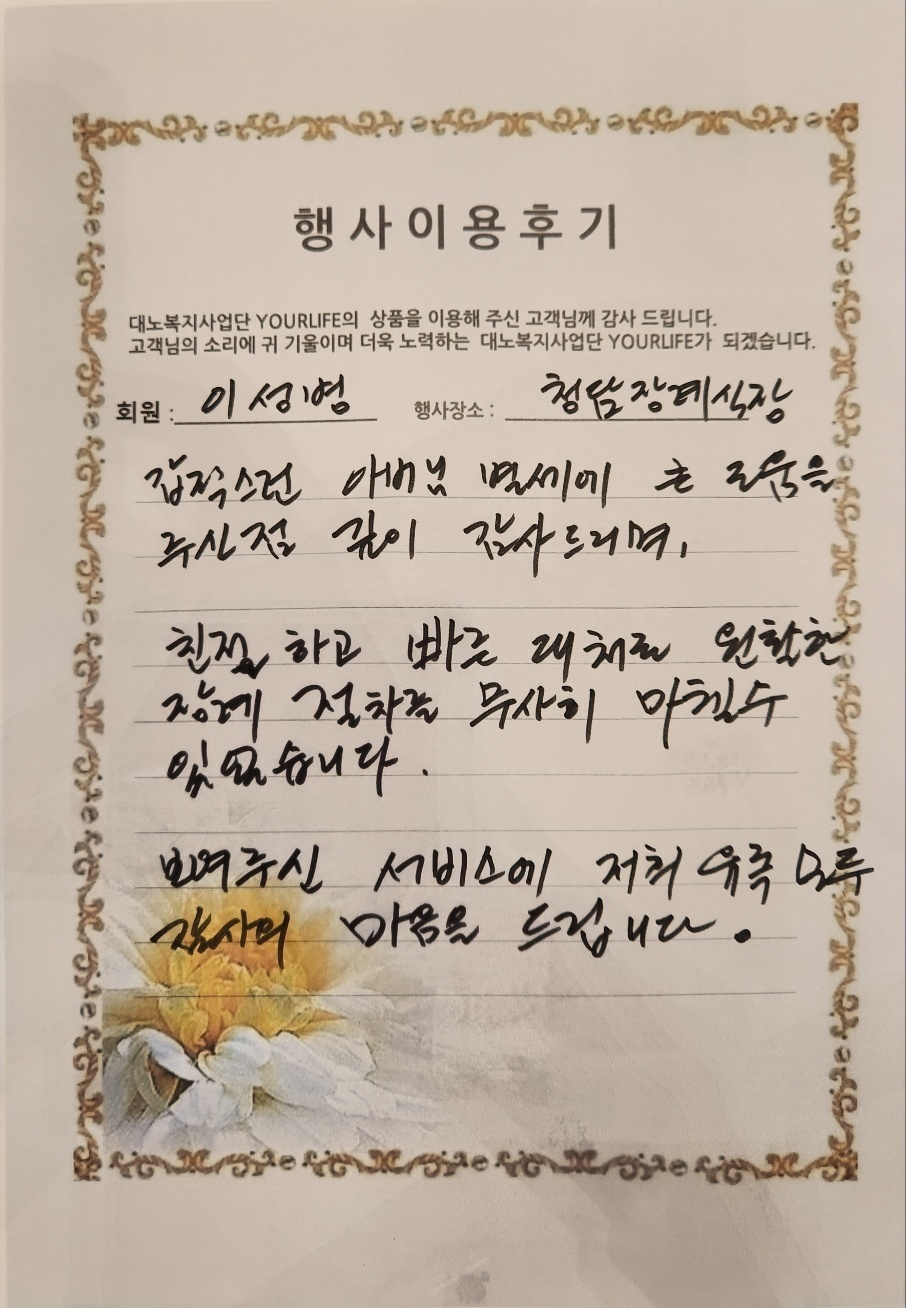 행사이용후기
대노복지사업단 YOURLIFE의 상품을 이용해 주신 고객님께 감사 드립니다.
고객님의 소리에 귀 기울이며 더욱 노력하는 대노복지사업단 YOURLIFE가 되겠습니다.
회원 : 이성병 행사장소 : 청담장례식장
갑작스런 아버님 별세에 큰 도움을
주신점 깊이 감사드리며,
친절하고 빠른 대처로 원활한
장례 절차를 무사히 마칠수
있었습니다.
보여주신 서비스에 저희 유족 모두
감사의 마음을 드립니다.